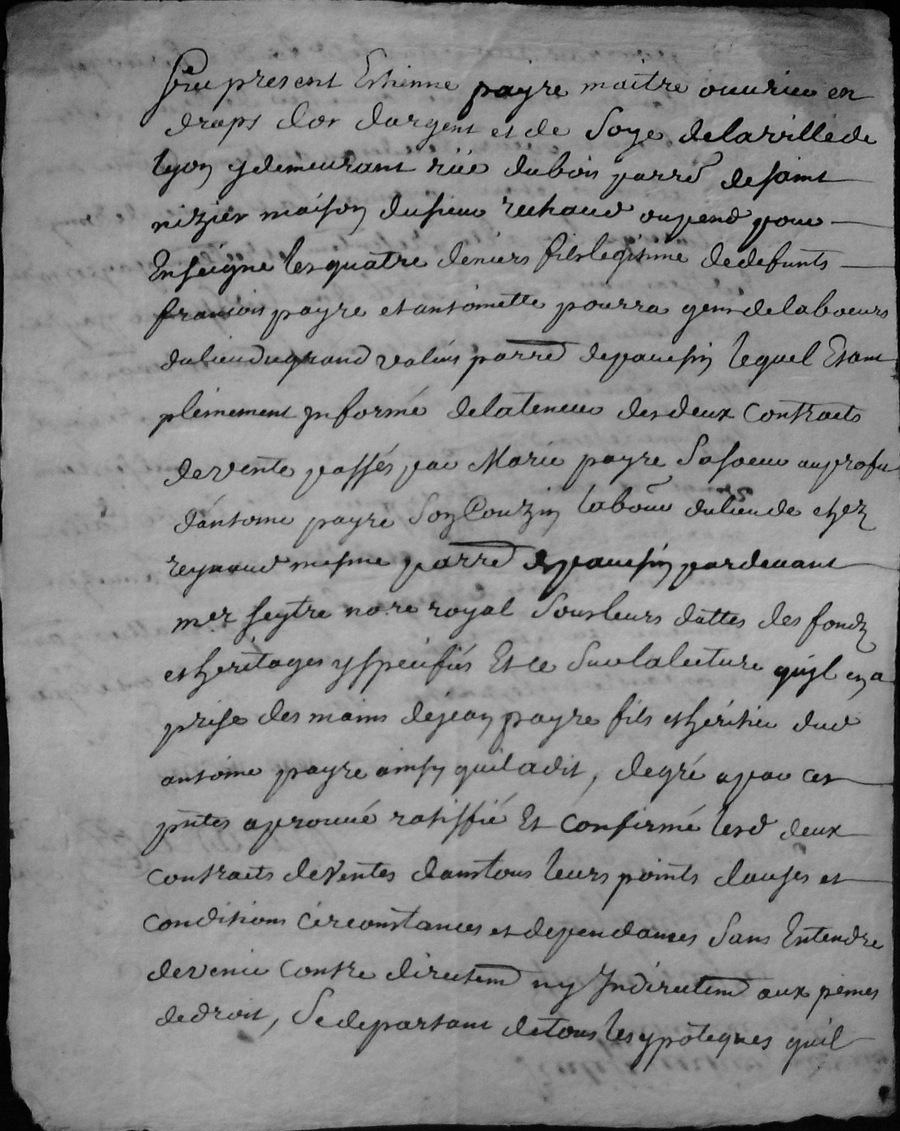 présent Estienne payre maitre ouurier en
draps dor dargent et de Soye delavillede
lyon y demeurant rüe dubois parr̃e desaint
nizier maison dusieur rechaud oupend pour
Enseigne les quatre deniers fils legitime dedefunts
francois payre et antoinette pourra gens delabeurs
dulieu dugrand parr̃e lequel Etant
pleinement Jnformé delateneur des deux Contracts
devente passés par Marie payre Sasoeur auprofit
dantoine payre Son Couzin labour̃ dulieu de chez
reynaud mesme parr̃e pardeuant
me seytre nore royal Sous leurs dattes des fondz
et héritages y specifiés Et ce Sur lalecture quil en a
prise des mains dejean payre fils et héritier dud
antoine payre ainsy quil a dit, degré a par ces
pñtes aprouué ratiffié Et Confirmé lesd deux
contracts deVentes danstous leurs points clauses et
conditions circonstances et dependances Sans Entendre
devenir contre directem̃ ny Jndirectem̃ aux peines
dedroit, Sedepartant detous les ypoteques quil